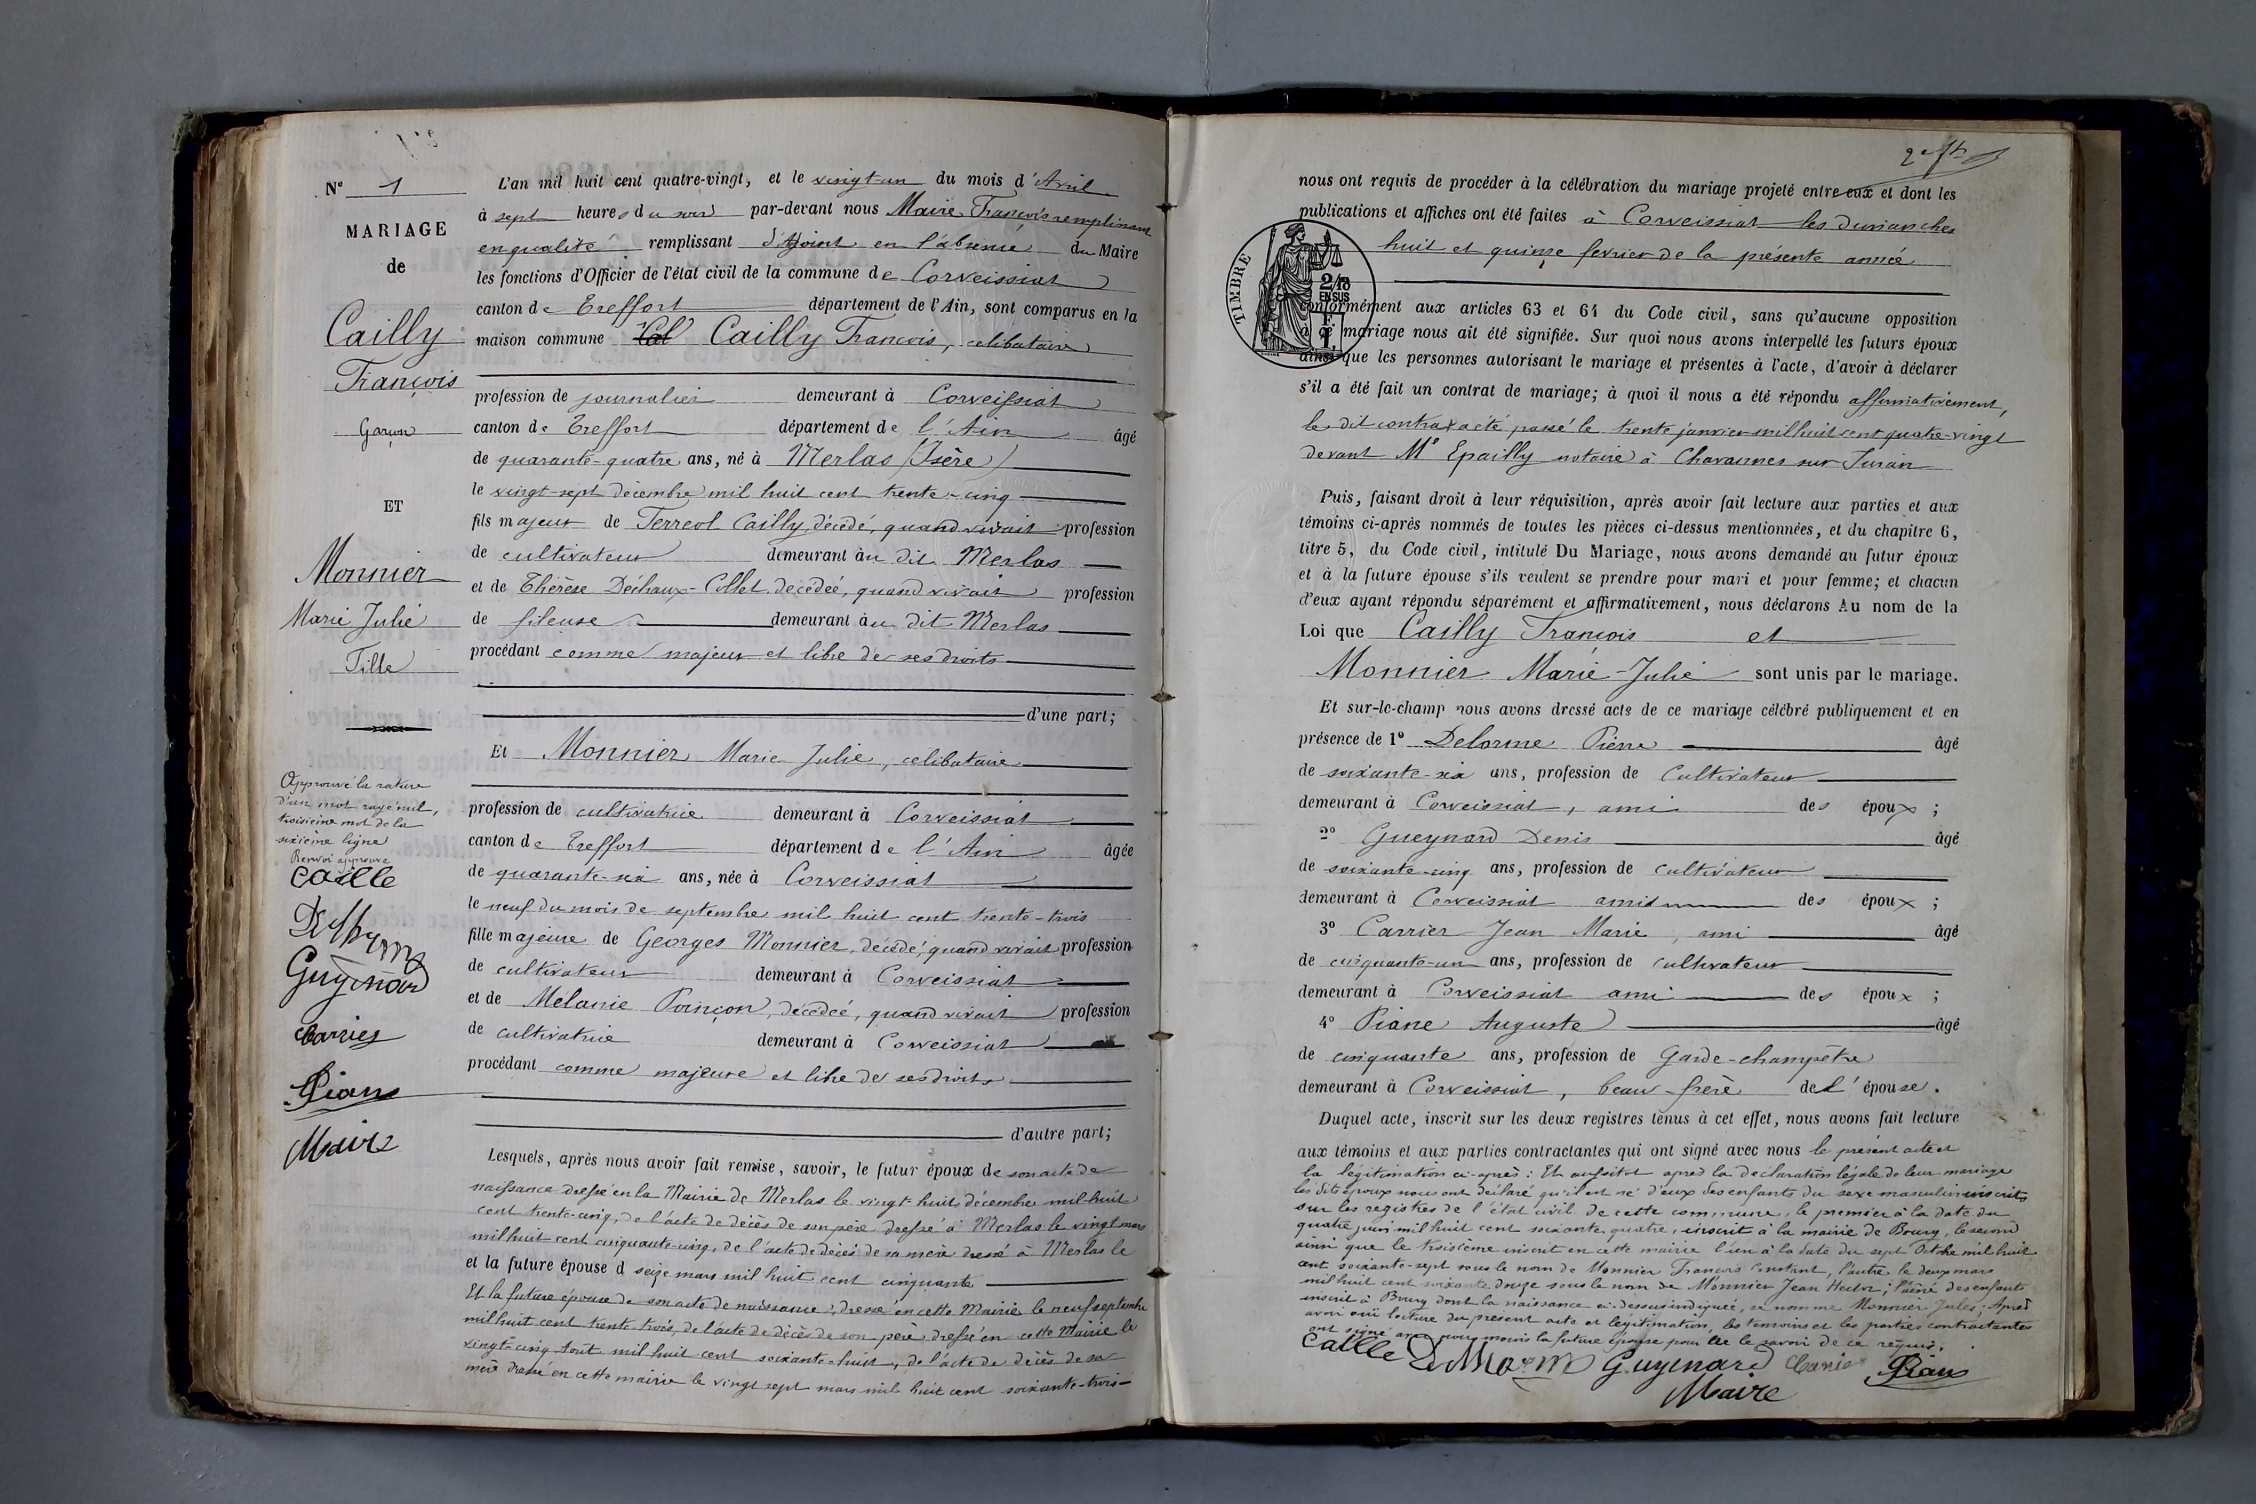 Nº 1
MARIAGE
de
Cailly
François
Garçon
ET
Monnier
Marie Julie
Fille
Approuvé la rature
d'un mot rayé nul,
troisième mot de la
sixième ligne
Renvoi approuvé
Caille
Guyenard
Carrier
Piane
Maire
L'an mil huit cent quatre-vingt, et le vingt-un du mois d'Avril
à sept heures du soir par-devant nous Maire François remplissant
en qualité remplissant d'Adjoint en l'absence du Maire
les fonctions d'Officier de l'état civil de la commune de Corveissiat
canton de Treffort département de l'Ain, sont comparus en la
maison commune Cailly François, celibataire
profession de journalier demeurant à Corveissiat
canton de Treffort département de l'Ain âgé
de quarante-quatre ans, né à Merlas (Isère)
le vingt-sept décembre mil huit cent trente-cinq
fils majeur de Ferreol Cailly, décédé, quand vivait profession
de cultivateur demeurant au dit Merlas
et de Thérèse Déchaux-Collet, décédée, quand vivait profession
de fileuse demeurant au dit Merlas
procédant comme majeur et libre de ses droits
d'une part;
Et Monnier Marie Julie, celibataire
profession de cultivatrice demeurant à Corveissiat
canton de Treffort département de l'Ain âgée
de quarante-six ans, née à Corveissiat
le neuf du mois de septembre mil huit cent trente-trois
fille majeure de Georges Monnier, décédé, quand vivait profession
de cultivateur demeurant à Corveissiat
et de Mélanie Poinçon, décédée, quand vivait profession
de cultivatrice demeurant à Corveissiat
procédant comme majeure et libre de ses droits
d'autre part;
Lesquels, après nous avoir fait remise, savoir, le futur époux de son acte de
naissance dressé en la Mairie de Merlas le vingt-huit décembre mil huit
cent trente-cinq, de l'acte de décès de son père dressé à Merlas le vingt mars
mil huit cent cinquante-cinq, de l'acte de décès de sa mère dressé à Merlas le
et la future épouse d seize mars mil huit cent cinquante
Et la future épouse de son acte de naissance, dressé en cette Mairie le neuf septembre
mil huit cent trente trois, de l'acte de décès de son père dressé en cette Mairie le
vingt-cinq août mil huit cent soixante-huit, de l'acte de décès de sa
mère dressé en cette mairie le vingt sept mars mil huit cent soixante-trois
nous ont requis de procéder à la célébration du mariage projeté entre eux et dont les
publications et affiches ont été faites à Corveissiat les dimanches
huit et quinze fevrier de la présente année
TIMBRE
2/10
EN SUS
F.
1.
conformément aux articles 63 et 64 du Code civil, sans qu'aucune opposition
à ce mariage nous ait été signifiée. Sur quoi nous avons interpellé les futurs époux
ainsi que les personnes autorisant le mariage et présentes à l'acte, d'avoir à déclarer
s'il a été fait un contrat de mariage; à quoi il nous a été répondu affirmativement,
le dit contrat a été passé le trente janvier mil huit cent quatre-vingt
devant Me Epailly notaire à Chavannes sur Suran
Puis, faisant droit à leur réquisition, après avoir fait lecture aux parties et aux
témoins ci-après nommés de toutes les pièces ci-dessus mentionnées, et du chapitre 6,
titre 5, du Code civil, intitulé Du Mariage, nous avons demandé au futur époux
et à la future épouse s'ils veulent se prendre pour mari et pour femme; et chacun
d'eux ayant répondu séparément et affirmativement, nous déclarons Au nom de la
Loi que Cailly François et
Monnier Marie-Julie sont unis par le mariage.
Et sur-le-champ nous avons dressé acte de ce mariage célébré publiquement et en
présence de 1º Delorme Pierre âgé
de soixante-six ans, profession de Cultivateur
demeurant à Corveissiat, ami des époux;
2º Gueynard Denis âgé
de soixante-cinq ans, profession de cultivateur
demeurant à Corveissiat amis des époux;
3º Carrier Jean Marie, ami âgé
de cinquante-un ans, profession de cultivateur
demeurant à Corveissiat ami des époux;
4º Piane Auguste âgé
de cinquante ans, profession de Garde-champêtre
demeurant à Corveissiat, beau-frère de l'épouse.
Duquel acte, inscrit sur les deux registres tenus à cet effet, nous avons fait lecture
aux témoins et aux parties contractantes qui ont signé avec nous le présent acte et
la légitimation ci-après: Et aussitot après la déclaration légale de leur mariage
les dits époux nous ont déclaré qu'il est né d'eux des enfants du sexe masculin inscrits
sur les registres de l'état civil de cette commune, le premier à la date du
quatre juin mil huit cent soixante quatre, inscrit à la mairie de Bourg, le second
ainsi que le troisième inscrit en cette mairie l'un à la date du sept Octobre mil huit
cent soixante-sept sous le nom de Monnier François Constant, l'autre le deux mars
mil huit cent soixante douze sous le nom de Monnier Jean Hector; l'ainé des enfants
inscrit à Bourg dont la naissance ci-dessus indiquée, se nomme Monnier Jules; Après
avoir ouï lecture du présent acte et légitimation, les témoins et les parties contractantes
ont signé avec nous moins la future épouse pour ne le savoir de ce requis.
Caille Guyenard Carrier Piane
Maire